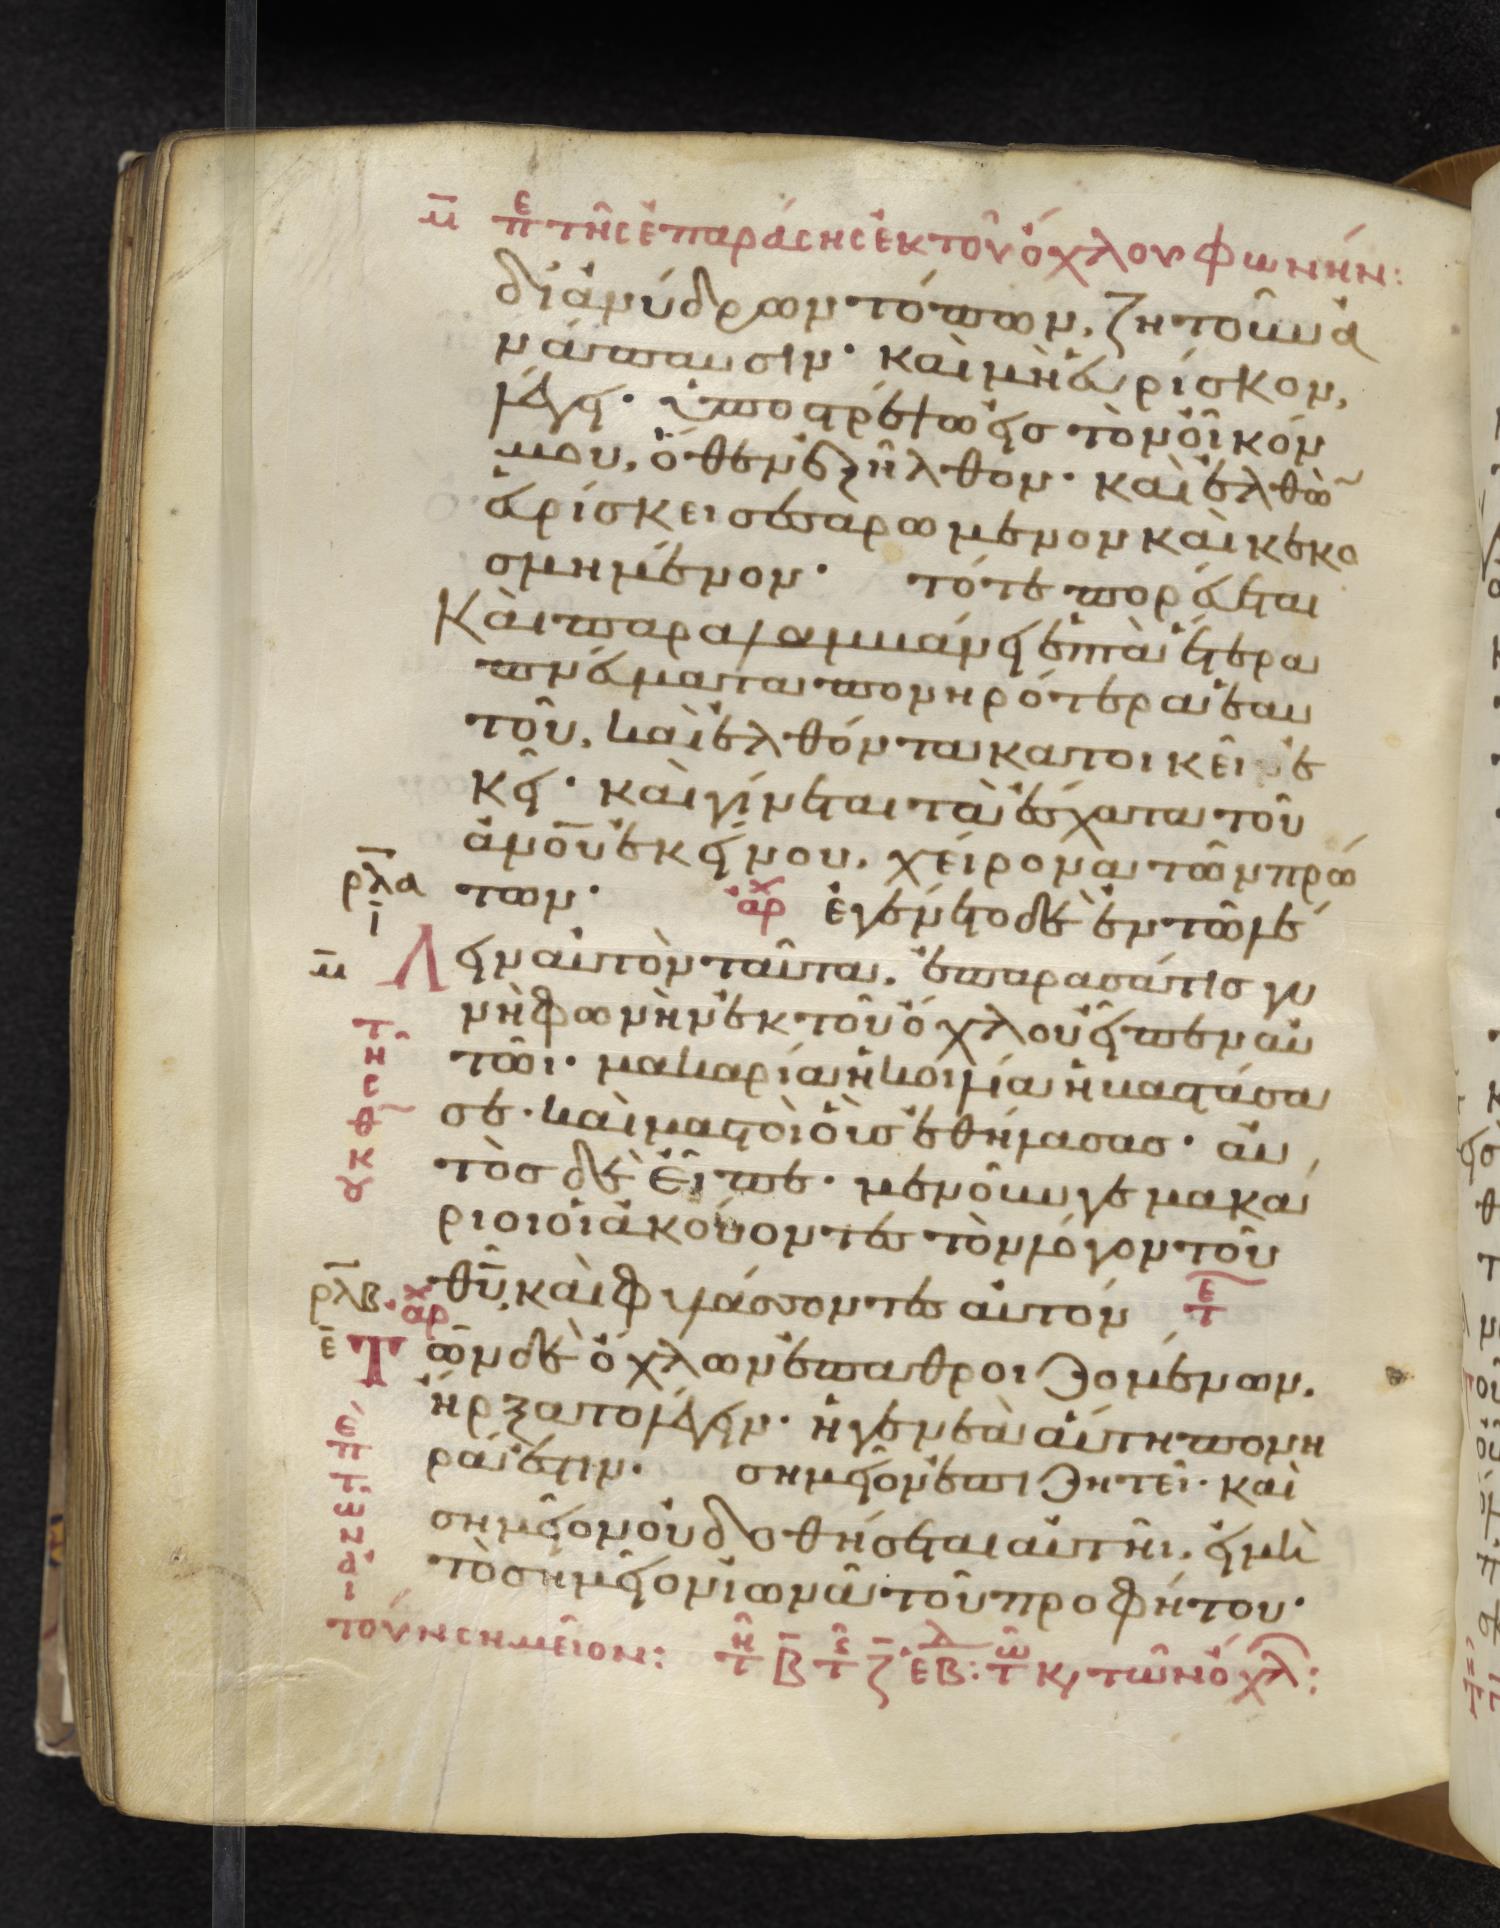 μ̅ περ τῆς ἐπαράσης ἐκ τοῦ ὄχλου φωνήν:
δι ἀνύδρων τόπων, ζητοῦν ἀ
νάπαυσιν· καὶ μὴ εὑρίσκον,
λέγει· ὑποστρέψω εἰς τὸν οἶκόν
μου, ὅθεν ἐξῆλθον· καὶ ἐλθὼ̃
εὑρίσκει σεσαρωμένον καὶ κεκο
σμημένον· τότε πορεύεται
Καὶ παραλαμβάνει ἑπτὰ ἕτερα
πνεύματα πονηρότερα ἑαυ
τοῦ, καὶ ἐλθόντα κατοικεῖ ἐ
κεῖ· καὶ γίνεται τὰ ἔσχατα τοῦ
ἀν̅ο̅υ̅ ἐκείνου, χείρονα τῶν πρώ
ρλα
ι
των· ἀρχ ἐγένετο δὲ ἐν τῷ λέ
μ̅ Λ
γειν αὐτὸν ταῦτα, ἐπάρασά τις γυ
νὴ φωνὴν ἐκ τοῦ ὄχλου εἶπεν αὐ
τῶι· μακαρία ἡ κοιλία ἡ βαστάσα
σά σε· καὶ μαστοὶ οἷς ἐθήλασας· αὐ
τὸς δὲ εἶπε· μενοῦν γε μακά
ριοι οἱ ἀκούοντες τὸν λόγον τοῦ
τῆς θ̅κ̅ου
ρλβ ἀρχ
θ̅υ̅, καὶ φυλάσσοντες αὐτόν τε
ε̅ Τ
ῶν δὲ ὄχλων ἐπαθροιζομένων,
ἤρξατο λέγειν· ἡ γενεὰ αὕτη πονη
ρά ἐστιν· σημεῖον ἐπιζητεῖ· καὶ
σημεῖον οὐ δοθήσεται αὐτῇ, εἰ μὴ
τὸ σημεῖον ἰωνᾶ τοῦ προφήτου·
τούν σημεῖον: τῆ β̅ τε ζ̅ ἑβ: τω κ, τῶν ὄχλ: